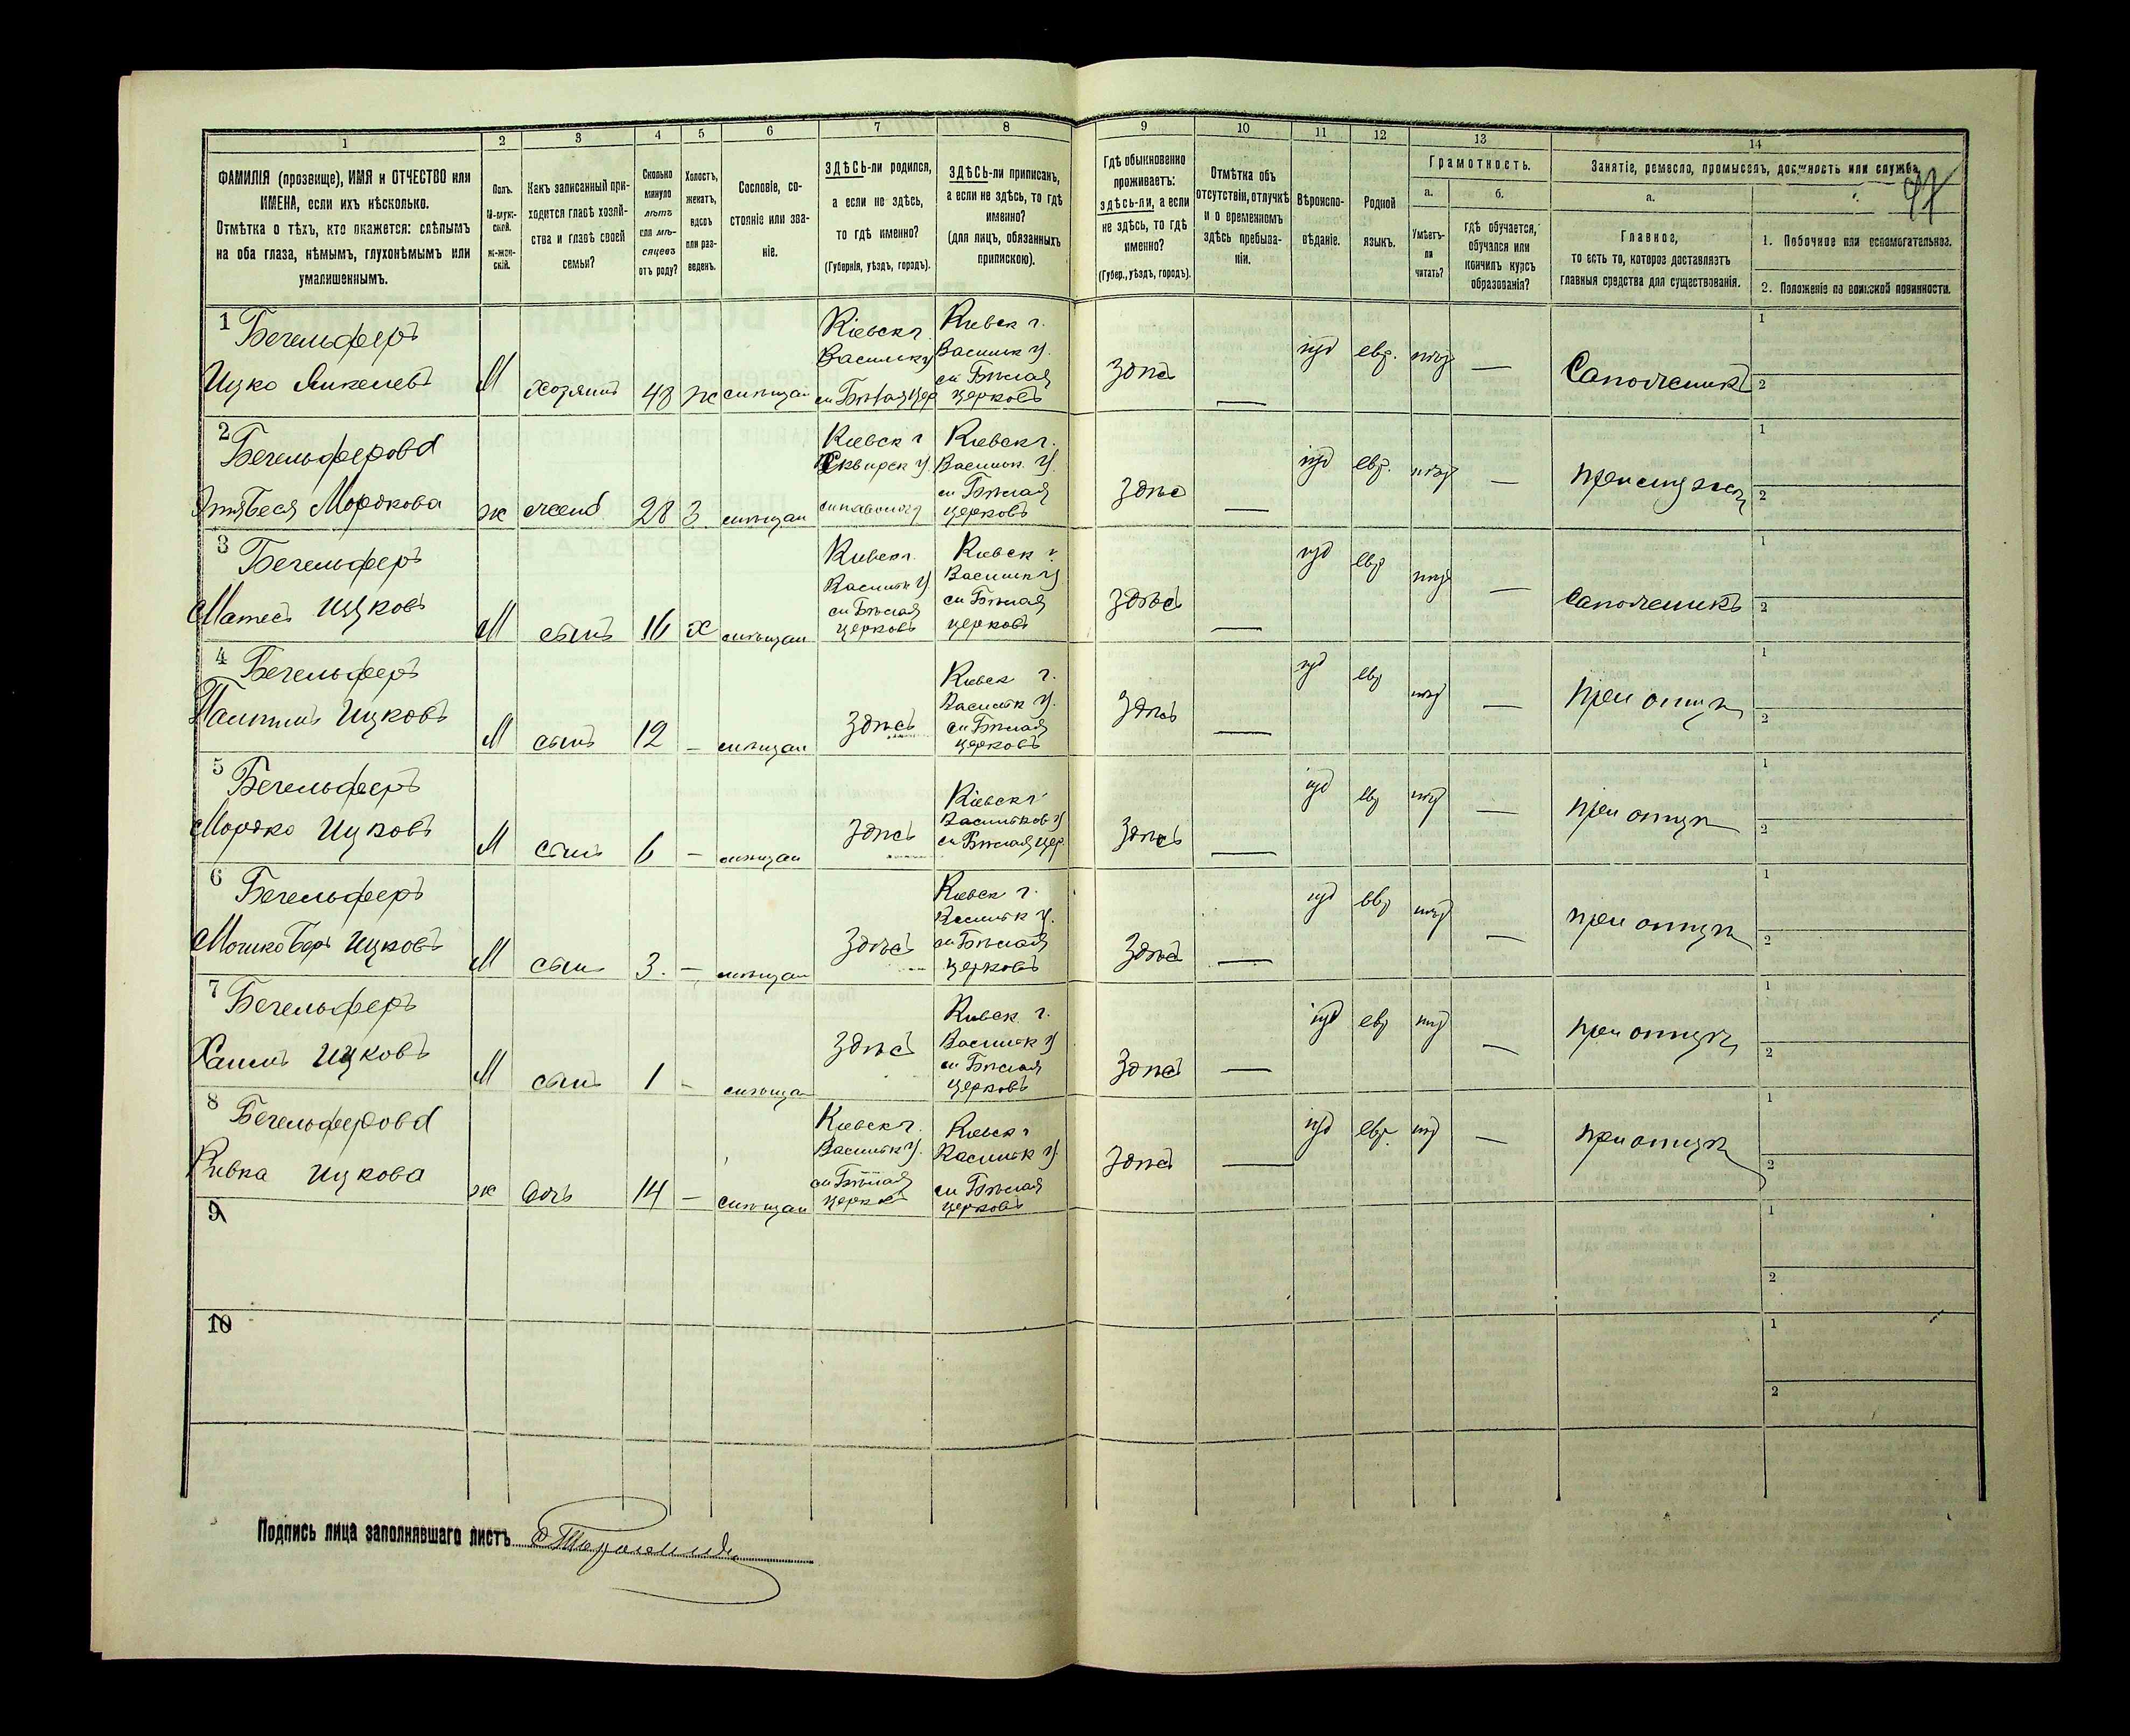 1
2
3
4
5
6
7
8
9
10
11
12
13
14
ФАМИЛІЯ (прозвище), ИМЯ и ОТЧЕСТВО или
ИМЕНА, если ихъ нѣсколько.
Отмѣтка о тѣхъ, кто окажется: слѣпымъ
на оба глаза, нѣмымъ, глухонѣмымъ или
умалишеннымъ.
Полъ.
М-муж-
ской.
ж-жен-
скій.
Какъ записанный при-
ходится главѣ хозяй-
ства и главѣ своей
семьи?
Сколько
минуло
лѣтъ
или мѣ-
сяцевъ
отъ роду?
Холостъ,
женатъ,
вдовъ
или раз-
веденъ.
Сословіе, со-
стояніе или зва-
ніе.
ЗДѢСЬ-ли родился,
а если не здѣсь,
то гдѣ именно?
(Губернія, уѣздъ, городъ).
ЗДѢСЬ-ли приписанъ,
а если не здѣсь, то гдѣ
именно?
(для лицъ, обязанныхъ
припискою).
Гдѣ обыкновенно
проживаетъ:
здѣсь-ли, а если
не здѣсь, то гдѣ
именно?
(Губер., уѣздъ, городъ).
Отмѣтка объ
отсутствіи, отлучкѣ
и о временномъ
здѣсь пребыва-
ніи.
Вѣроиспо-
вѣданіе.
Родной
языкъ.
Грамотность.
а.
б.
Умѣетъ-
ли
читать?
гдѣ обучается,
обучался или
кончилъ курсъ
образованія?
Занятіе, ремесло, промыселъ, должность или служба.
47
а.
Главное,
то есть то, которое доставляетъ
главныя средства для существованія.
1. Побочное или вспомогательное.
2. Положеніе по воинской повинности.
1
Бегельферъ
Ицко Янкелевъ
М
хозяинъ
48
ж
мѣщан
Кіевск г.
Васильк у
м Бѣлая Цер
Кіевск г.
Васильк у.
м Бѣлая
церковъ
здѣсь
—
іуд
евр.
—
Сапожникъ
1
2
2
Бегельферова
Мордкова
ж
жена
28
З.
мѣщан
Кіевск г
Сквирск у
м Паволочь
Кіевск г.
Васильк. у.
м Бѣлая
церковъ
здѣсь
—
іуд
евр.
—
1
2
3
Бегельферъ
Матесъ Ицковъ
М
сынъ
16
х
мѣщан
Кіевск г.
Васильк у
м Бѣлая
церковъ
Кіевск г
Васильк у
м Бѣлая
церковъ
здѣсь
—
іуд
евр
—
Сапожникъ
1
2
4
Бегельферъ
Ицковъ
М
сынъ
12
—
мѣщан
Здѣсь
Кіевск г.
Васильк у.
м Бѣлая
церковъ
Здѣсь
—
іуд
евр
—
при отцѣ
1
2
5
Бегельферъ
Мордко Ицковъ
М
сынъ
6
—
мѣщан
Здѣсь
Кіевск г
Васильков у
м Бѣлая цер
Здѣсь
—
іуд
евр
—
при отцѣ
1
2
6
Бегельферъ
Мошко Беръ Ицковъ
М
сын
3.
—
мѣщан
Здѣсь
Кіевск г.
Васильк у.
м Бѣлая
церковъ
Здѣсь
—
іуд
евр
—
при отцѣ
1
2
7
Бегельферъ
Хаимъ Ицковъ
М
сынъ
1
—
мѣщан
Здѣсь
Кіевск г.
Васильк у
м Бѣлая
церковъ
Здѣсь
—
іуд
евр
—
при отцѣ
1
2
8
Бегельферова
Ривка Ицкова
ж
дочь
14
—
мѣщан
Кіевск г.
Васильк у.
м Бѣлая
церков
Кіевск г
Васильк у
м Бѣлая
церковъ
Здѣсь
—
іуд
евр.
—
при отцѣ
1
2
9
1
2
10
1
2
Подпись лица заполнявшаго листъ